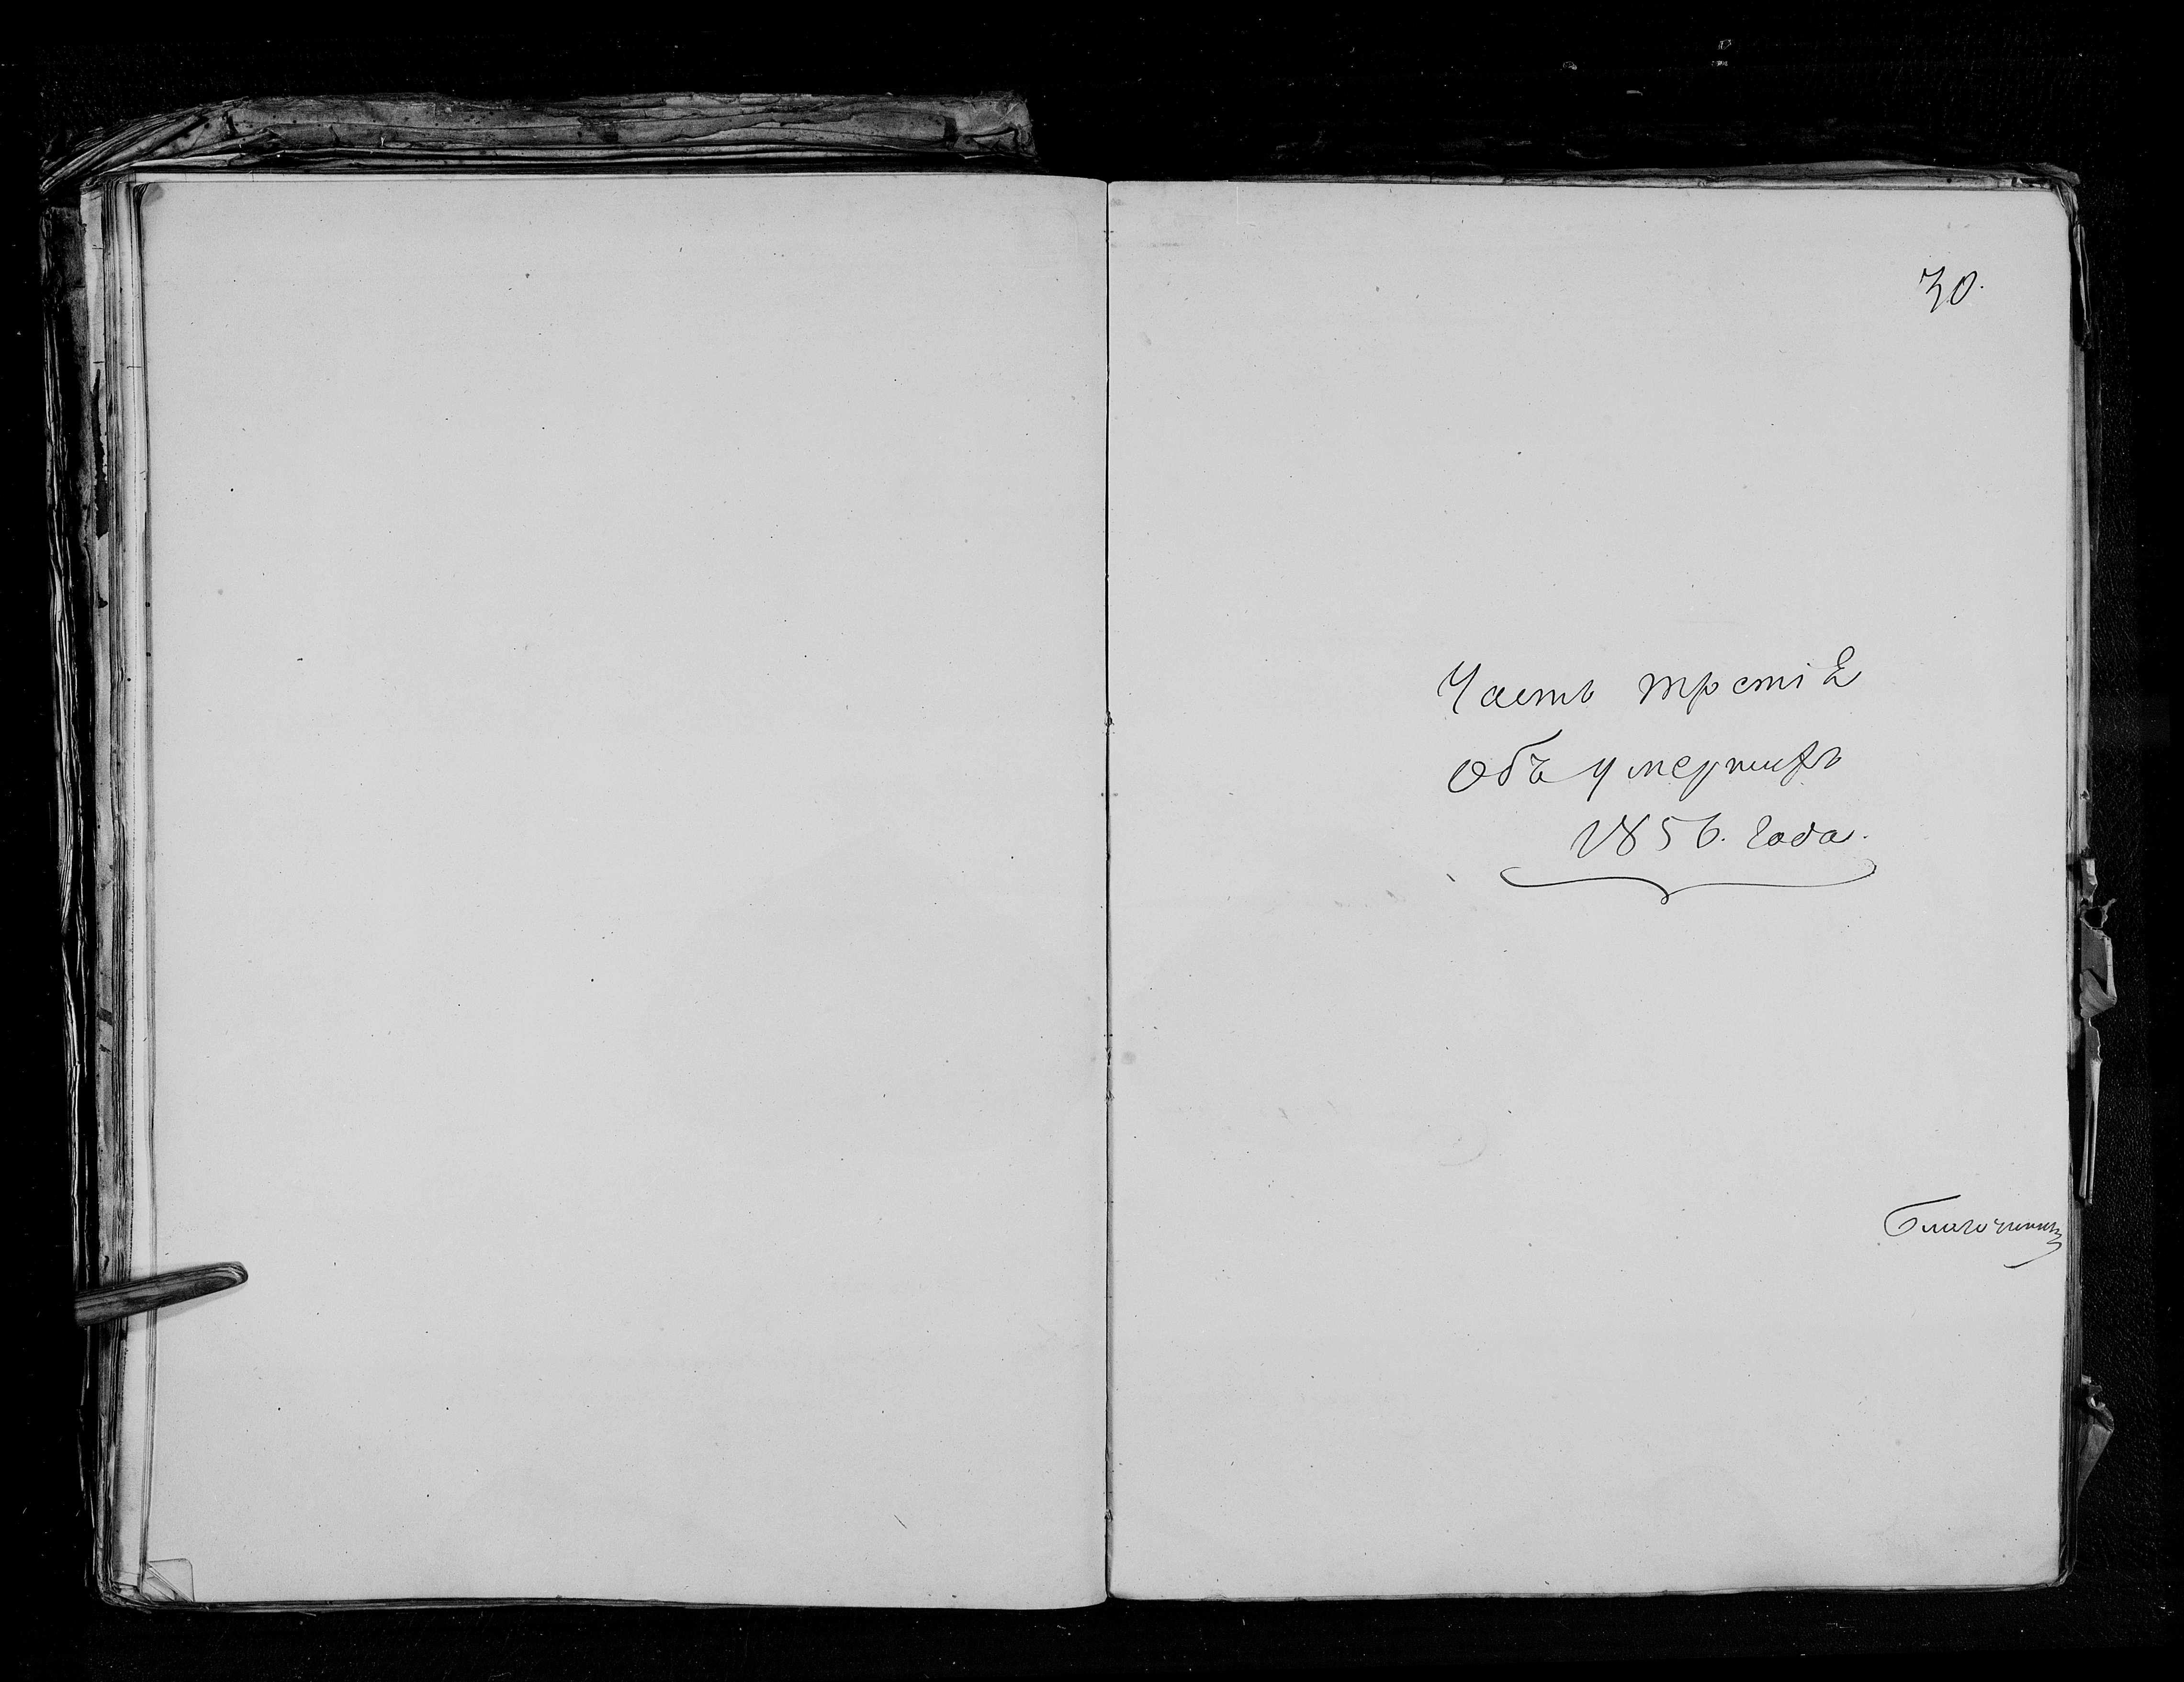 30.
Часть третія
Объ умершихъ
1856. года.
Благочинный